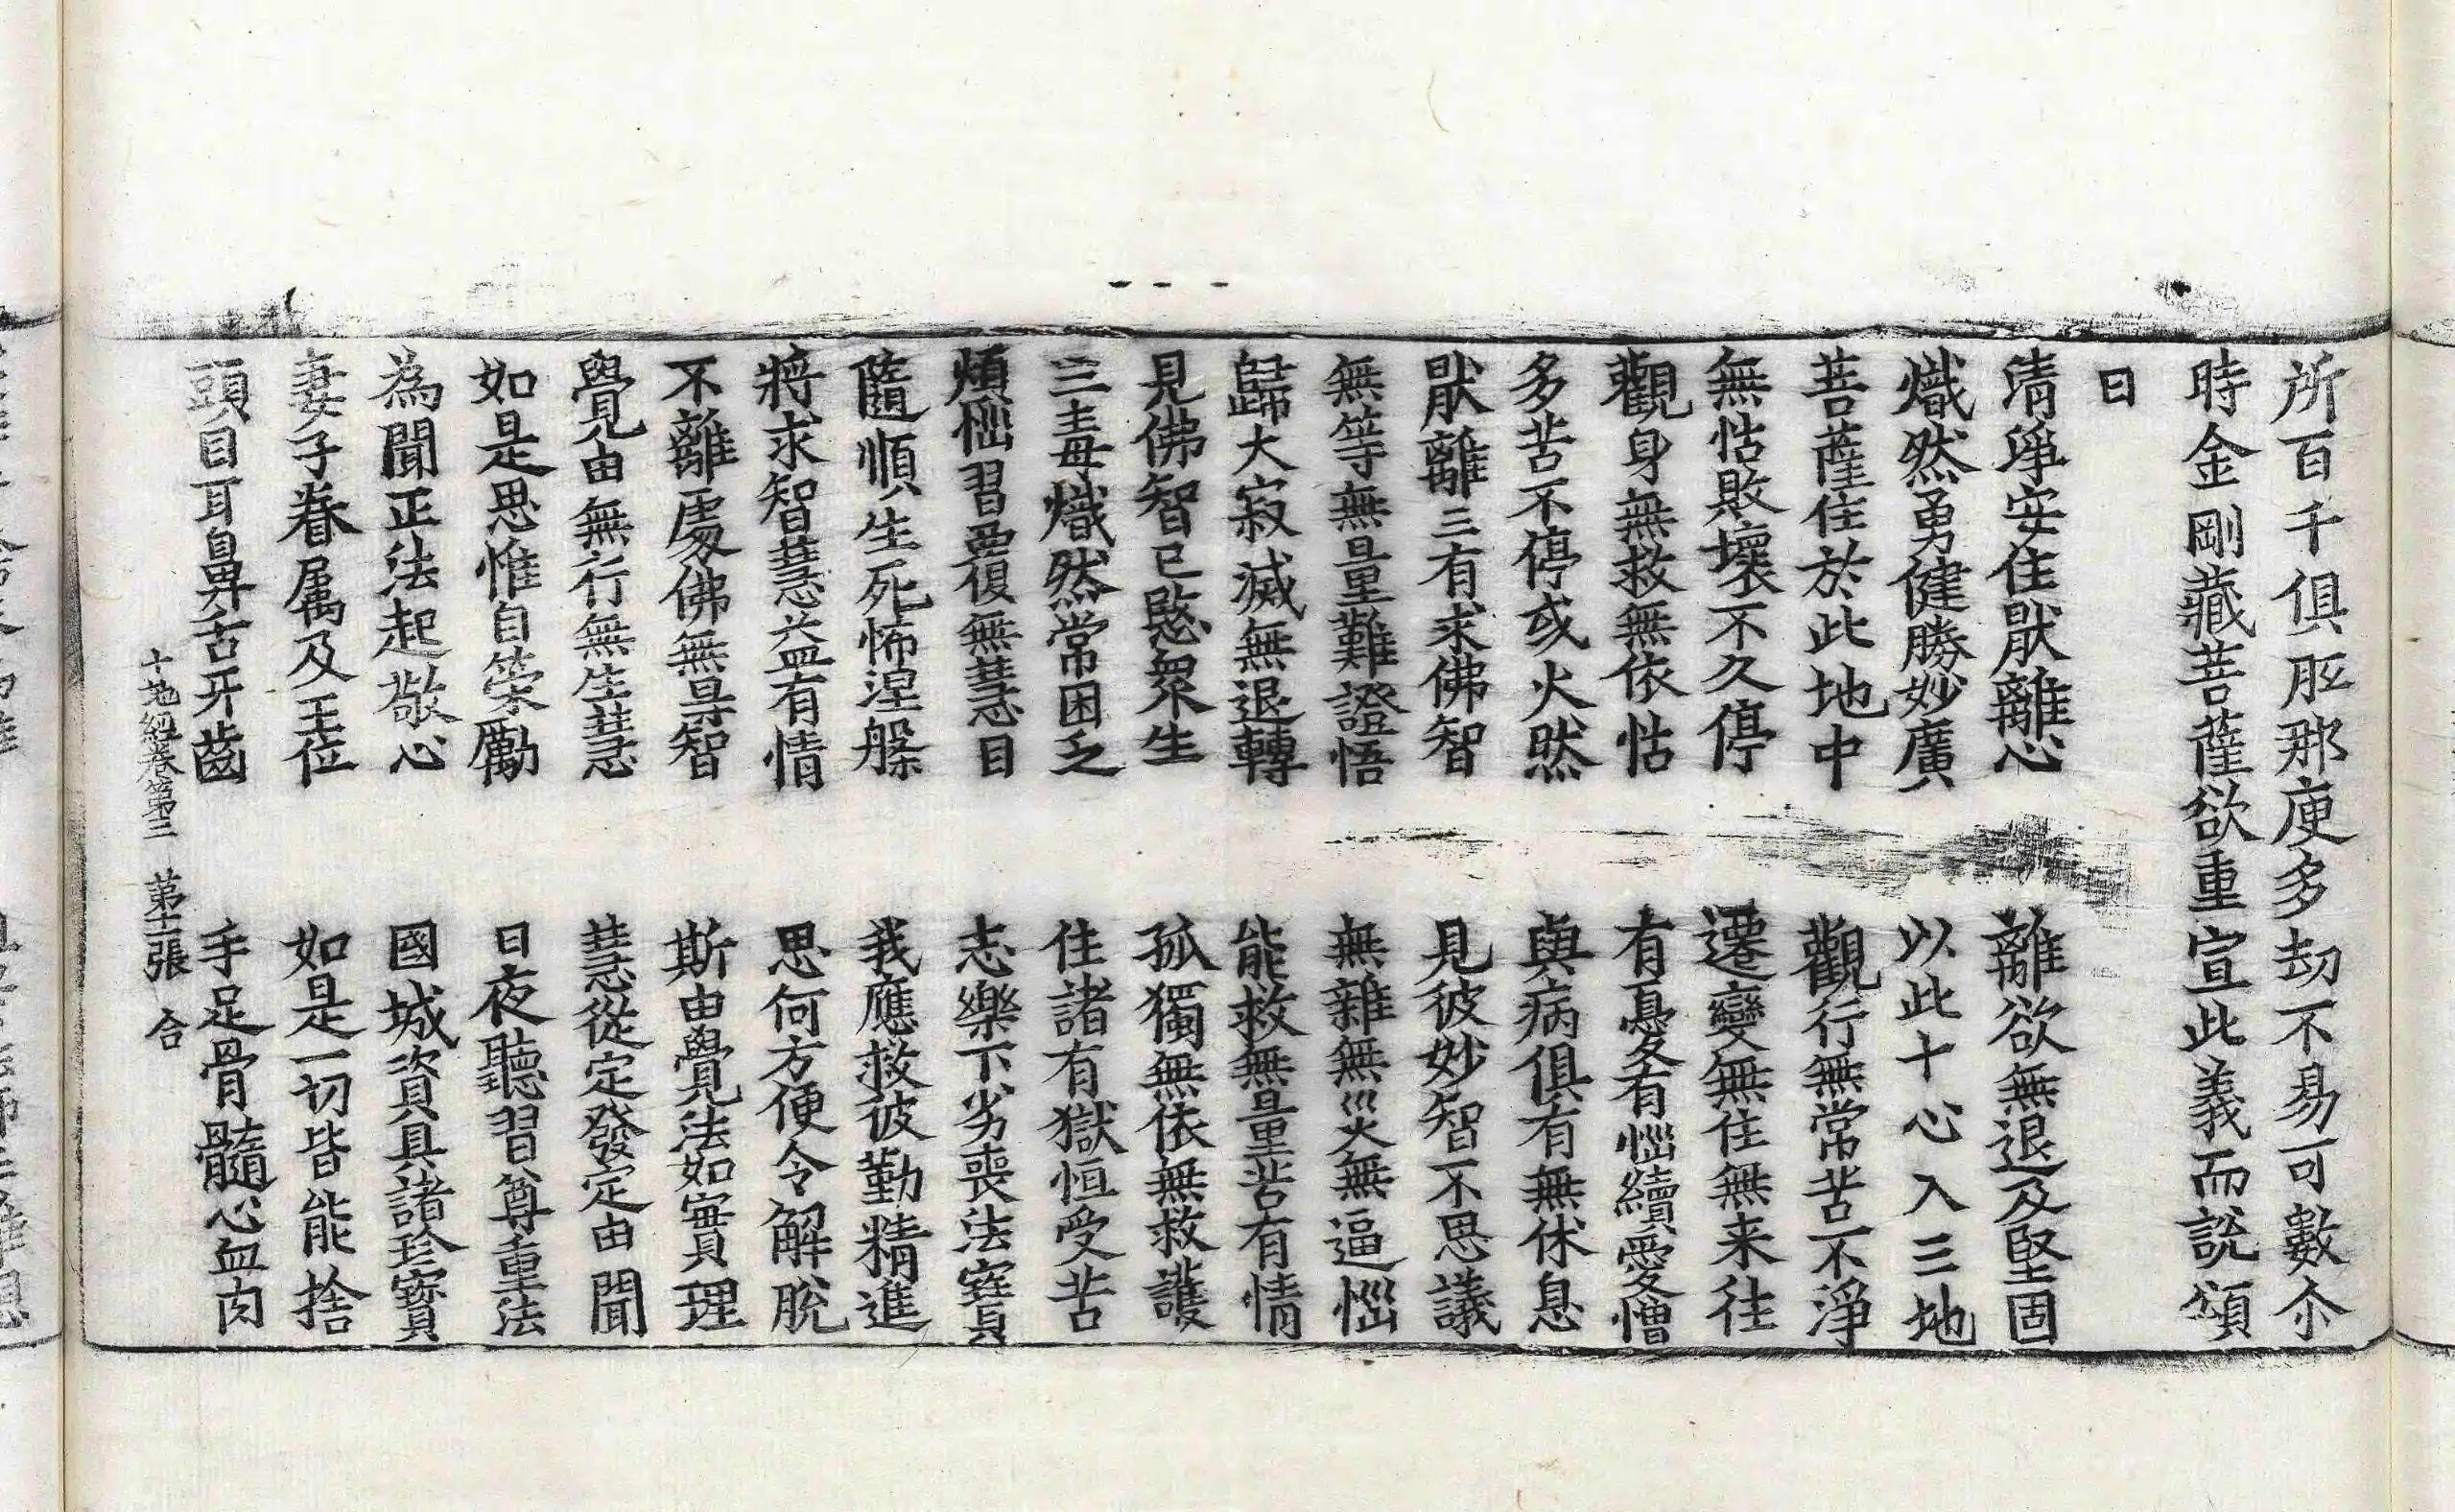 所百千俱胝那庾多劫不易可數尒
時金剛藏菩薩欲重宣此義而說頌
曰
清淨安住猒離心　離欲無退及堅固
熾然勇健勝妙廣　以此十心入三地
菩薩住於此地中　觀行無常苦不淨
無怙敗壞不久停　遷變無住無来往
觀身無救無依怙　有憂有惱續愛憎
多苦不停或火然　與病俱有無休息
猒離三有求佛智　見彼妙智不思議
無等無量難證悟　無雜無災無逼惱
歸大寂滅無退轉　能救無量苦有情
見佛智已愍眾生　孤獨無依無救護
三毒熾然常困乏　住諸有獄恒受苦
煩惱習覆無慧目　志樂下劣喪法寶
隨順生死怖涅槃　我應救彼勤精進
將求智慧益有情　思何方便令解脫
不離處佛無㝵智　斯由覺法如實理
覺由無行無生慧　慧從定發定由聞
如是思惟自策勵　日夜聽習尊重法
為聞正法起敬心　國城資具諸珍寶
妻子眷屬及王位　如是一切皆能捨
頭目耳鼻舌牙齒　手足骨髓心血肉
十地經卷第三　第　張　合